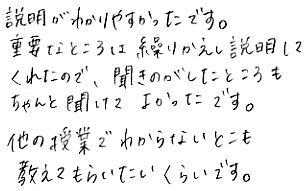 説明がわかりやすかったです。
重要なところは繰りかえし説明して
くれたので、聞きのがしたところも
ちゃんと聞けて よかったです。
他の授業でわからないとこも
教えてもらいたいくらいです。